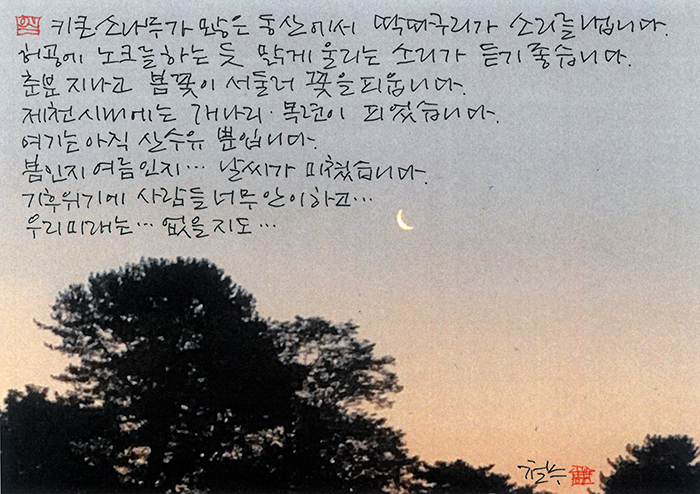 키큰 소나무가 많은 동산에서 딱따구리가 소리를 냅니다.
허공에 노크를 하는 듯 맑게 울리는 소리가 듣기 좋습니다.
춘분 지나고 봄꽃이 서둘러 꽃을 피웁니다.
제천 시내에는 개나리·목련이 피었습니다.
여기는 아직 산수유 뿐입니다.
봄인지 여름인지... 날씨가 미쳤습니다.
기후위기에 사람들 너무 안이하고...
우리 미래는... 없을지도...
철수